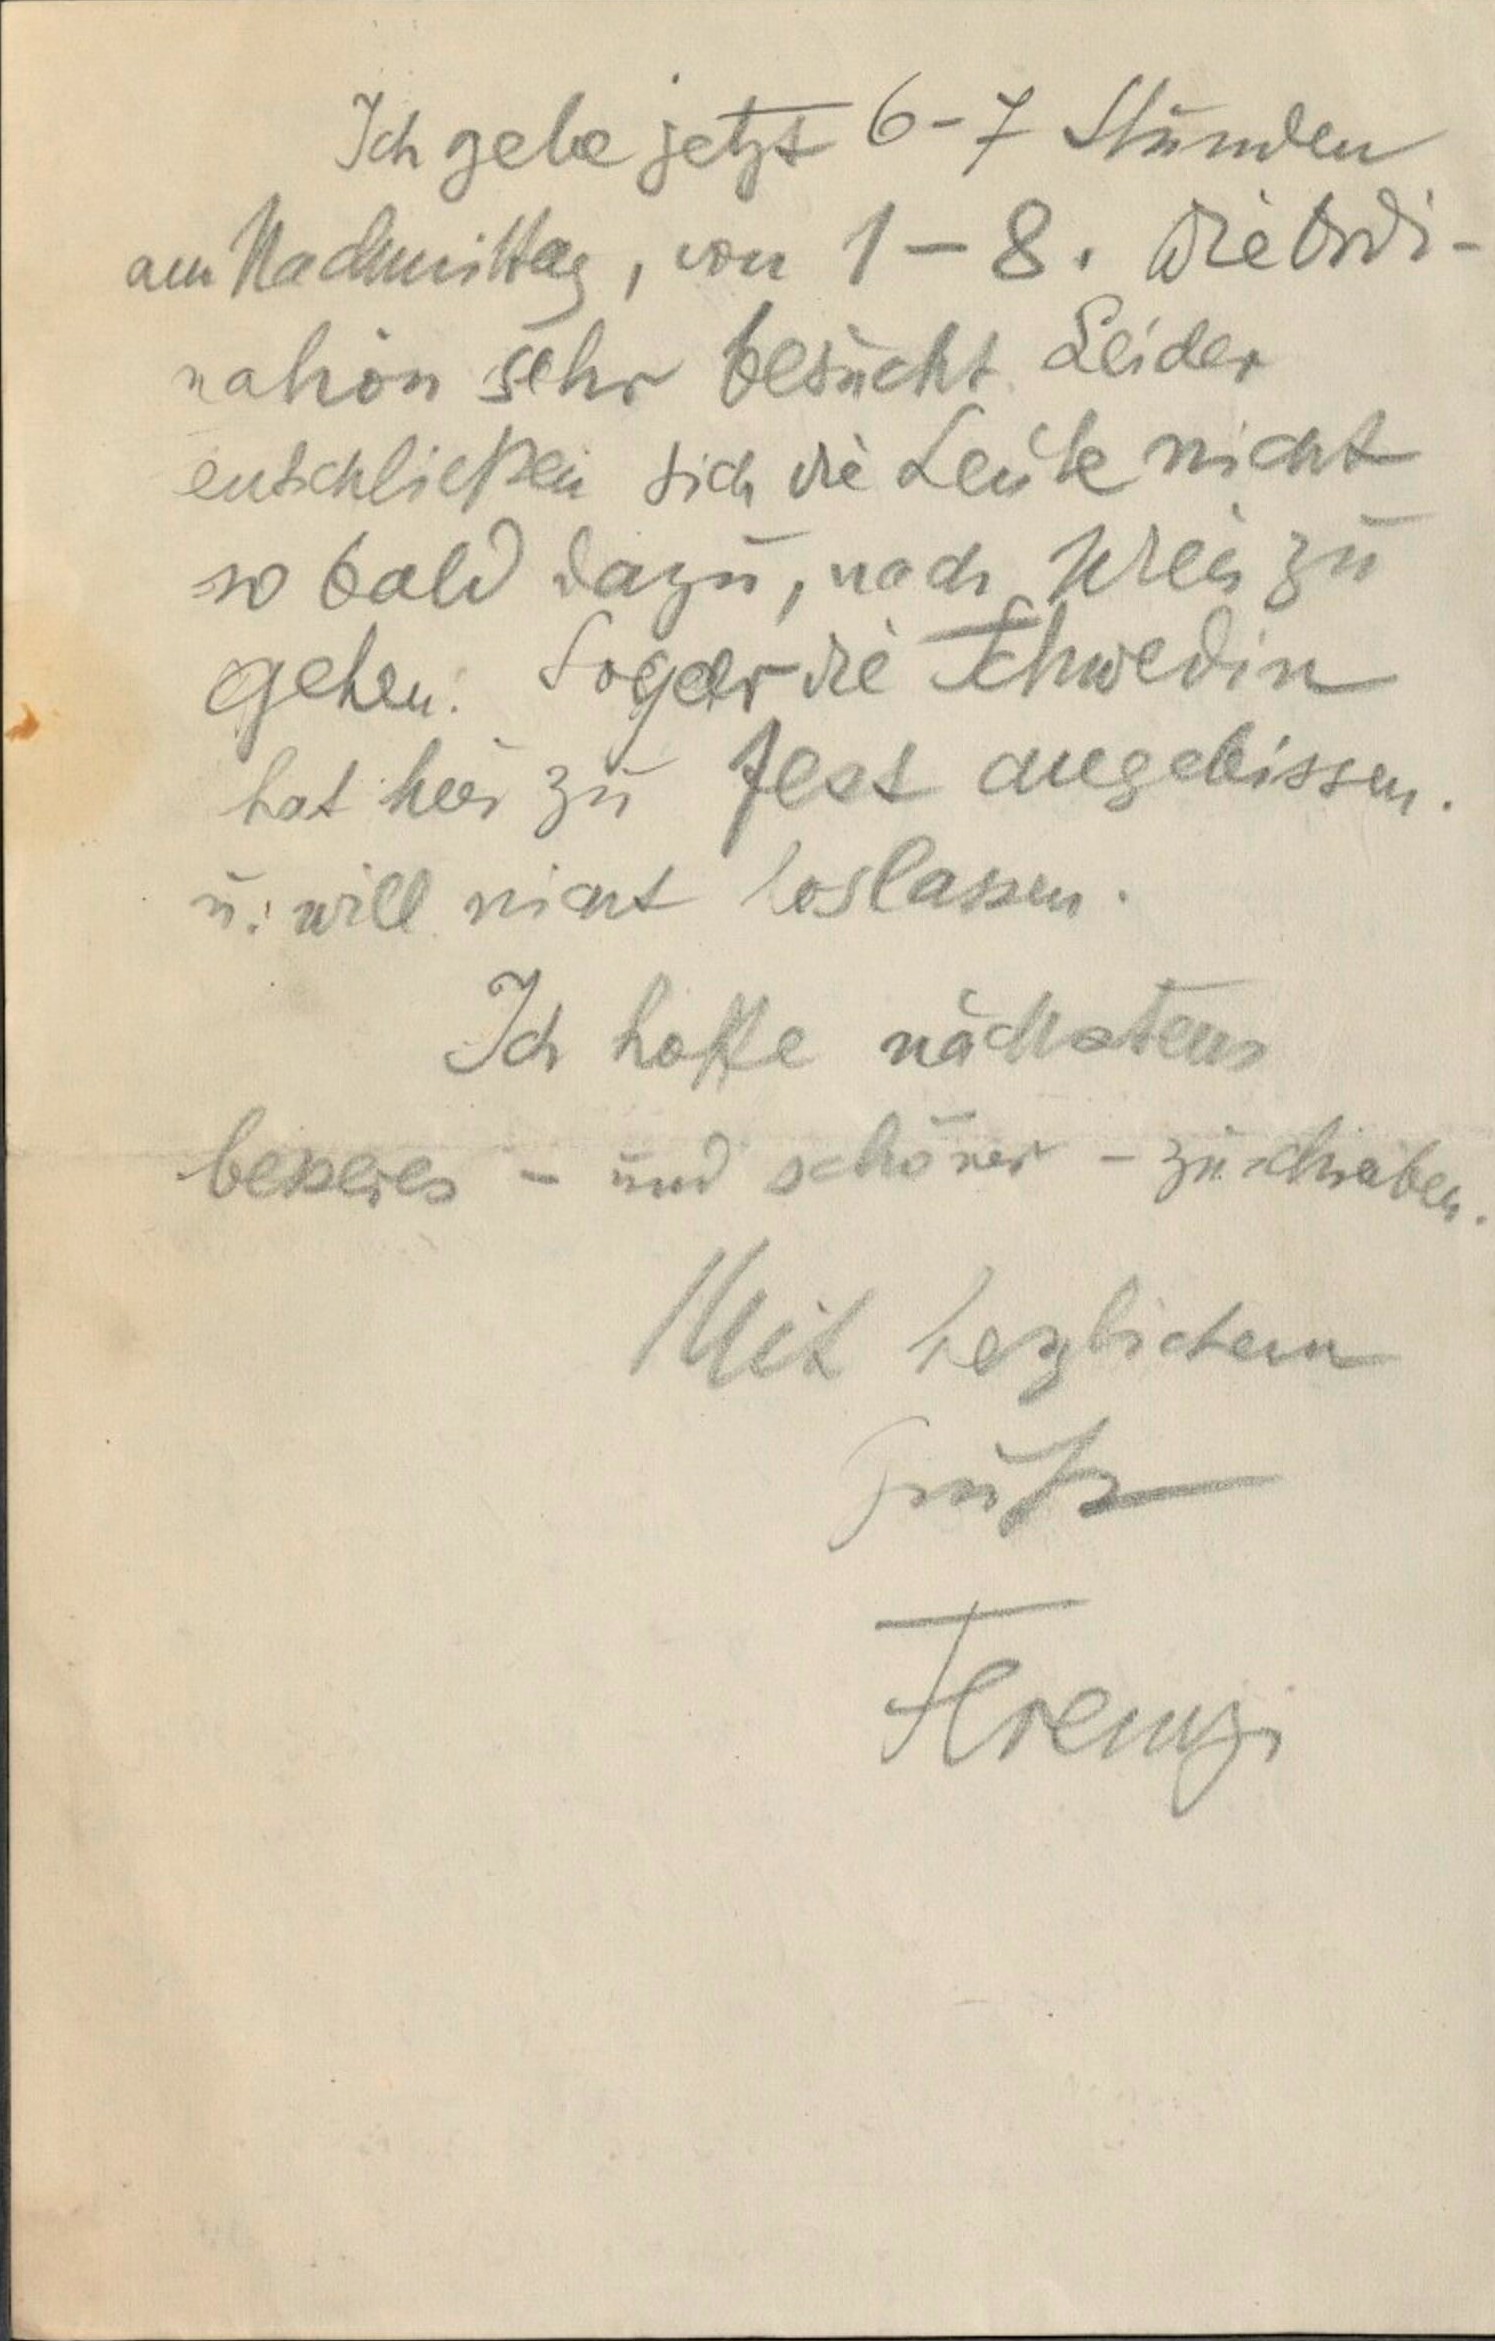 Ich gebe jetzt 6-7 Stunden
am Nachmittag, von 1-8. Die Ordi-
nation sehr besucht. Leider
entschließen sich die Leute nicht
so bald dazu, nach Wien zu
gehen. Sogar die Schwedin
hat hier zu fest angebissen.
u. will nicht loslassen.
Ich hoffe nächstens
besseres - und schöner - zu schreiben.
Mit herzlichem
Gruß
Ferenczi